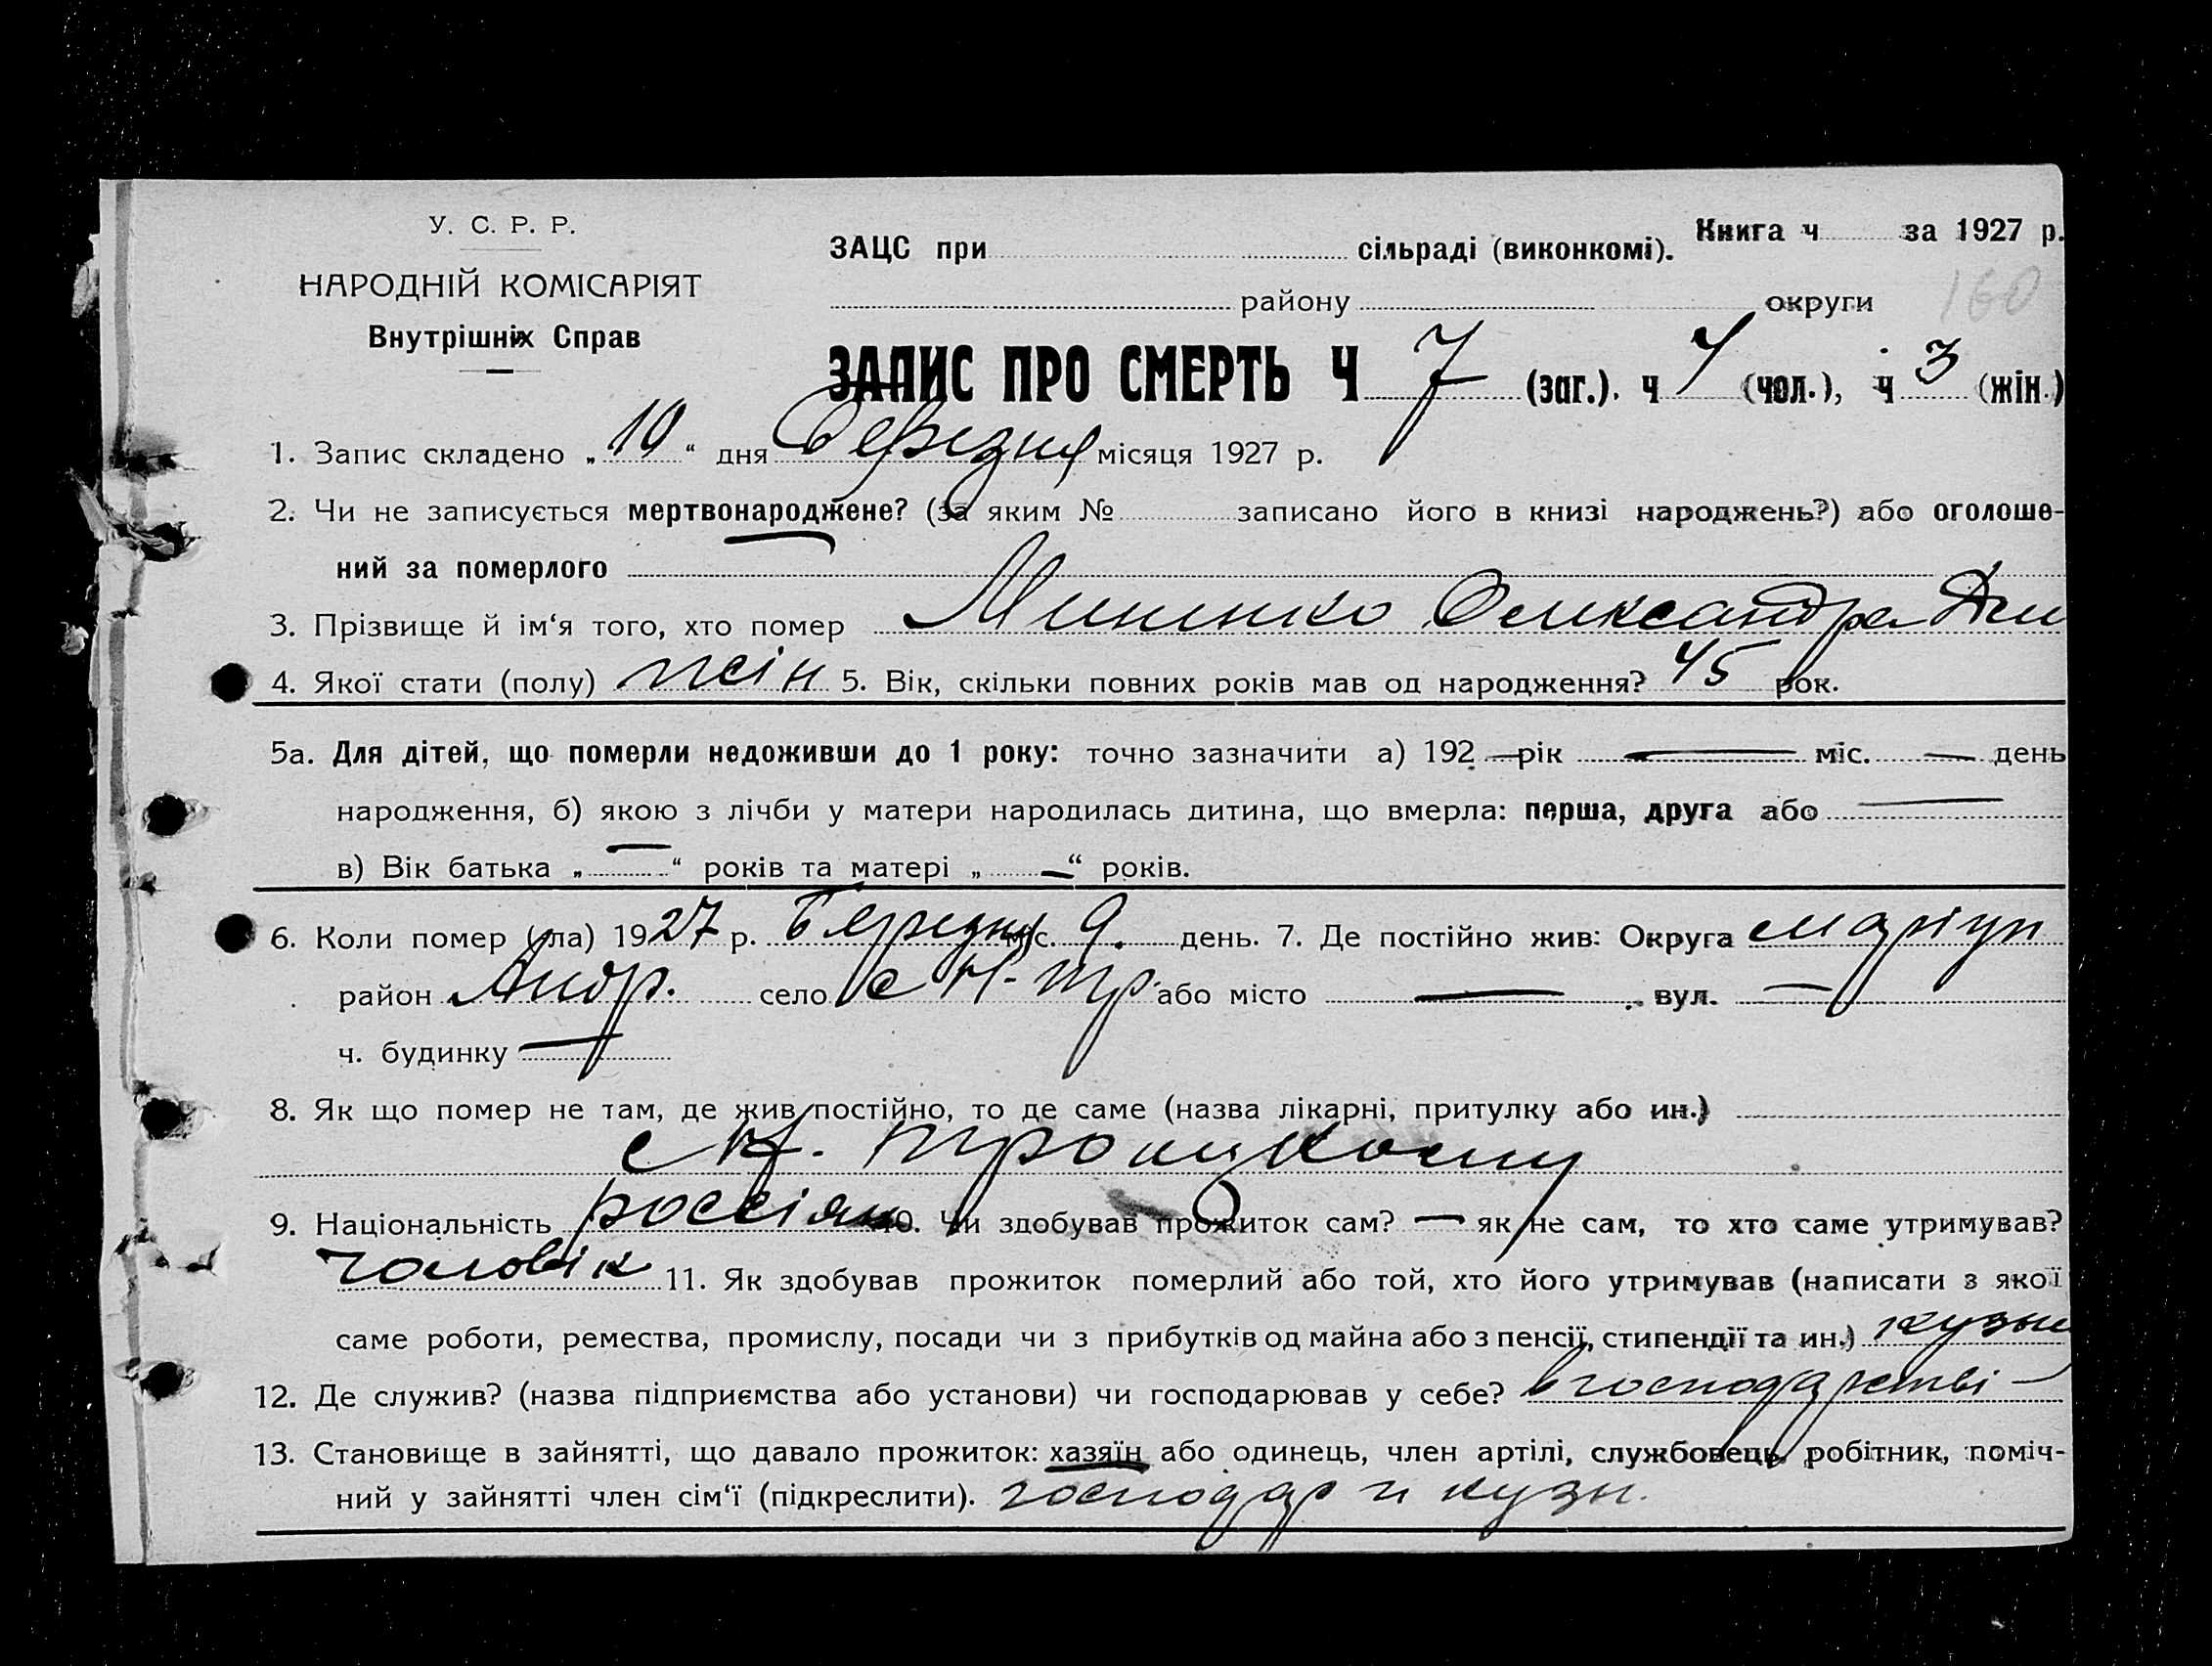 У. С. Р. Р.
НАРОДНІЙ КОМІСАРІЯТ
Внутрішніх Справ
Книга ч за 1927 р.
ЗАЦС при сільраді (виконкомі).
району округи
160
ЗАПИС ПРО СМЕРТЬ Ч 7 (заг.). ч 4 (чол.), ч 3 (жін.)
1. Запис складено „10“ дня Березня місяця 1927 р.
2. Чи не записується мертвонароджене? (за яким № записано його в книзі народжень?) або оголоше-
ний за померлого
3. Прізвище й ім‘я того, хто помер Миненко Олександра
4. Якої стати (полу) жін 5. Вік, скільки повних років мав од народження? 45 рок.
5а. Для дітей, що померли недоживши до 1 року: точно зазначити а) 192 — рік — міс. — день
народження, б) якою з лічби у матери народилась дитина, що вмерла: перша, друга або —
в) Вік батька „—“ років та матері „—“ років.
6. Коли помер (-ла) 1927 р. Березня міс. 9. день. 7. Де постійно жив: Округа Маріуп
район Андр. село с Н-Тр. або місто — вул. —
ч. будинку —
8. Як що помер не там, де жив постійно, то де саме (назва лікарні, притулку або ин.)
с Н. Троицкому
9. Національність россіян 10. Чи здобував прожиток сам? — як не сам, то хто саме утримував?
чоловік 11. Як здобував прожиток померлий або той, хто його утримував (написати з якої
саме роботи, ремества, промислу, посади чи з прибутків од майна або з пенсії, стипендії та ин.)
12. Де служив? (назва підприємства або установи) чи господарював у себе? в господарстві —
13. Становище в зайнятті, що давало прожиток: хазяїн або одинець, член артілі, службовець, робітник, поміч-
ний у зайнятті член сім‘ї (підкреслити). господар и кузн.